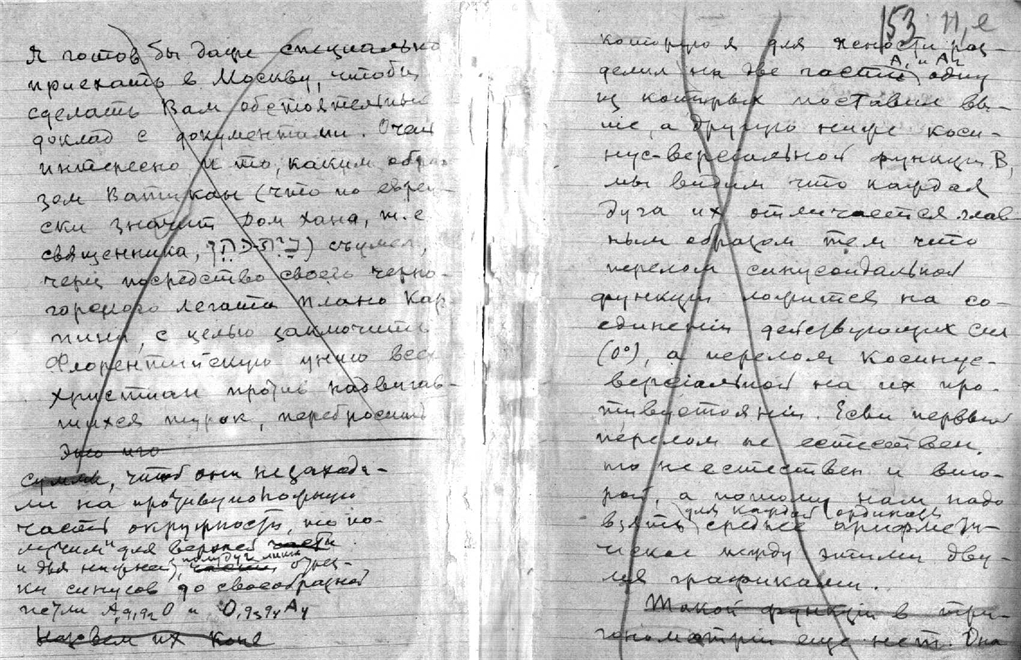 Я готов бы даже специально
приехать в Москву, чтобы
сделать Вам обстоятельный
доклад с документами. Очень
интересно и то, каким обра-
зом Ватикан (что по еврей-
ски значит дом хана, т.е.
священника,
через посредство своего черно-
горского легата Плано Кар
пини, с целью заключить
Флорентийскую унию всех
христиан против надвигав-
шихся турок, перебросить
Это его
сумма, чтоб они не заходи-
ли на противуположную
часть окружность, то по-
лучим для верхней части
и для нижней, части отрез-
ки синусов до своеобразной
петли
Назовем их
153
которую я для ясности раз-
делил на две части, одну
A₁ и A₄
из которых поставил вы-
ше, а другую ниже коси-
нус-версиальной функции B,
мы видим что каждая
дуга их отличается глав
ным образом тем что
перелом синусоидальной
функции ложится на со-
единении действующих сил
(0°), а перелом косинус-
версиальной на их про-
тивустоянии. Если первый
перелом не естествен,
то неестествен и вто-
рой, а потому нам надо
для каждой ординаты
взять среднее арифмети-
ческое между этими дву-
мя графиками.
Такой функции в три-
гонометрии еще нет. Она